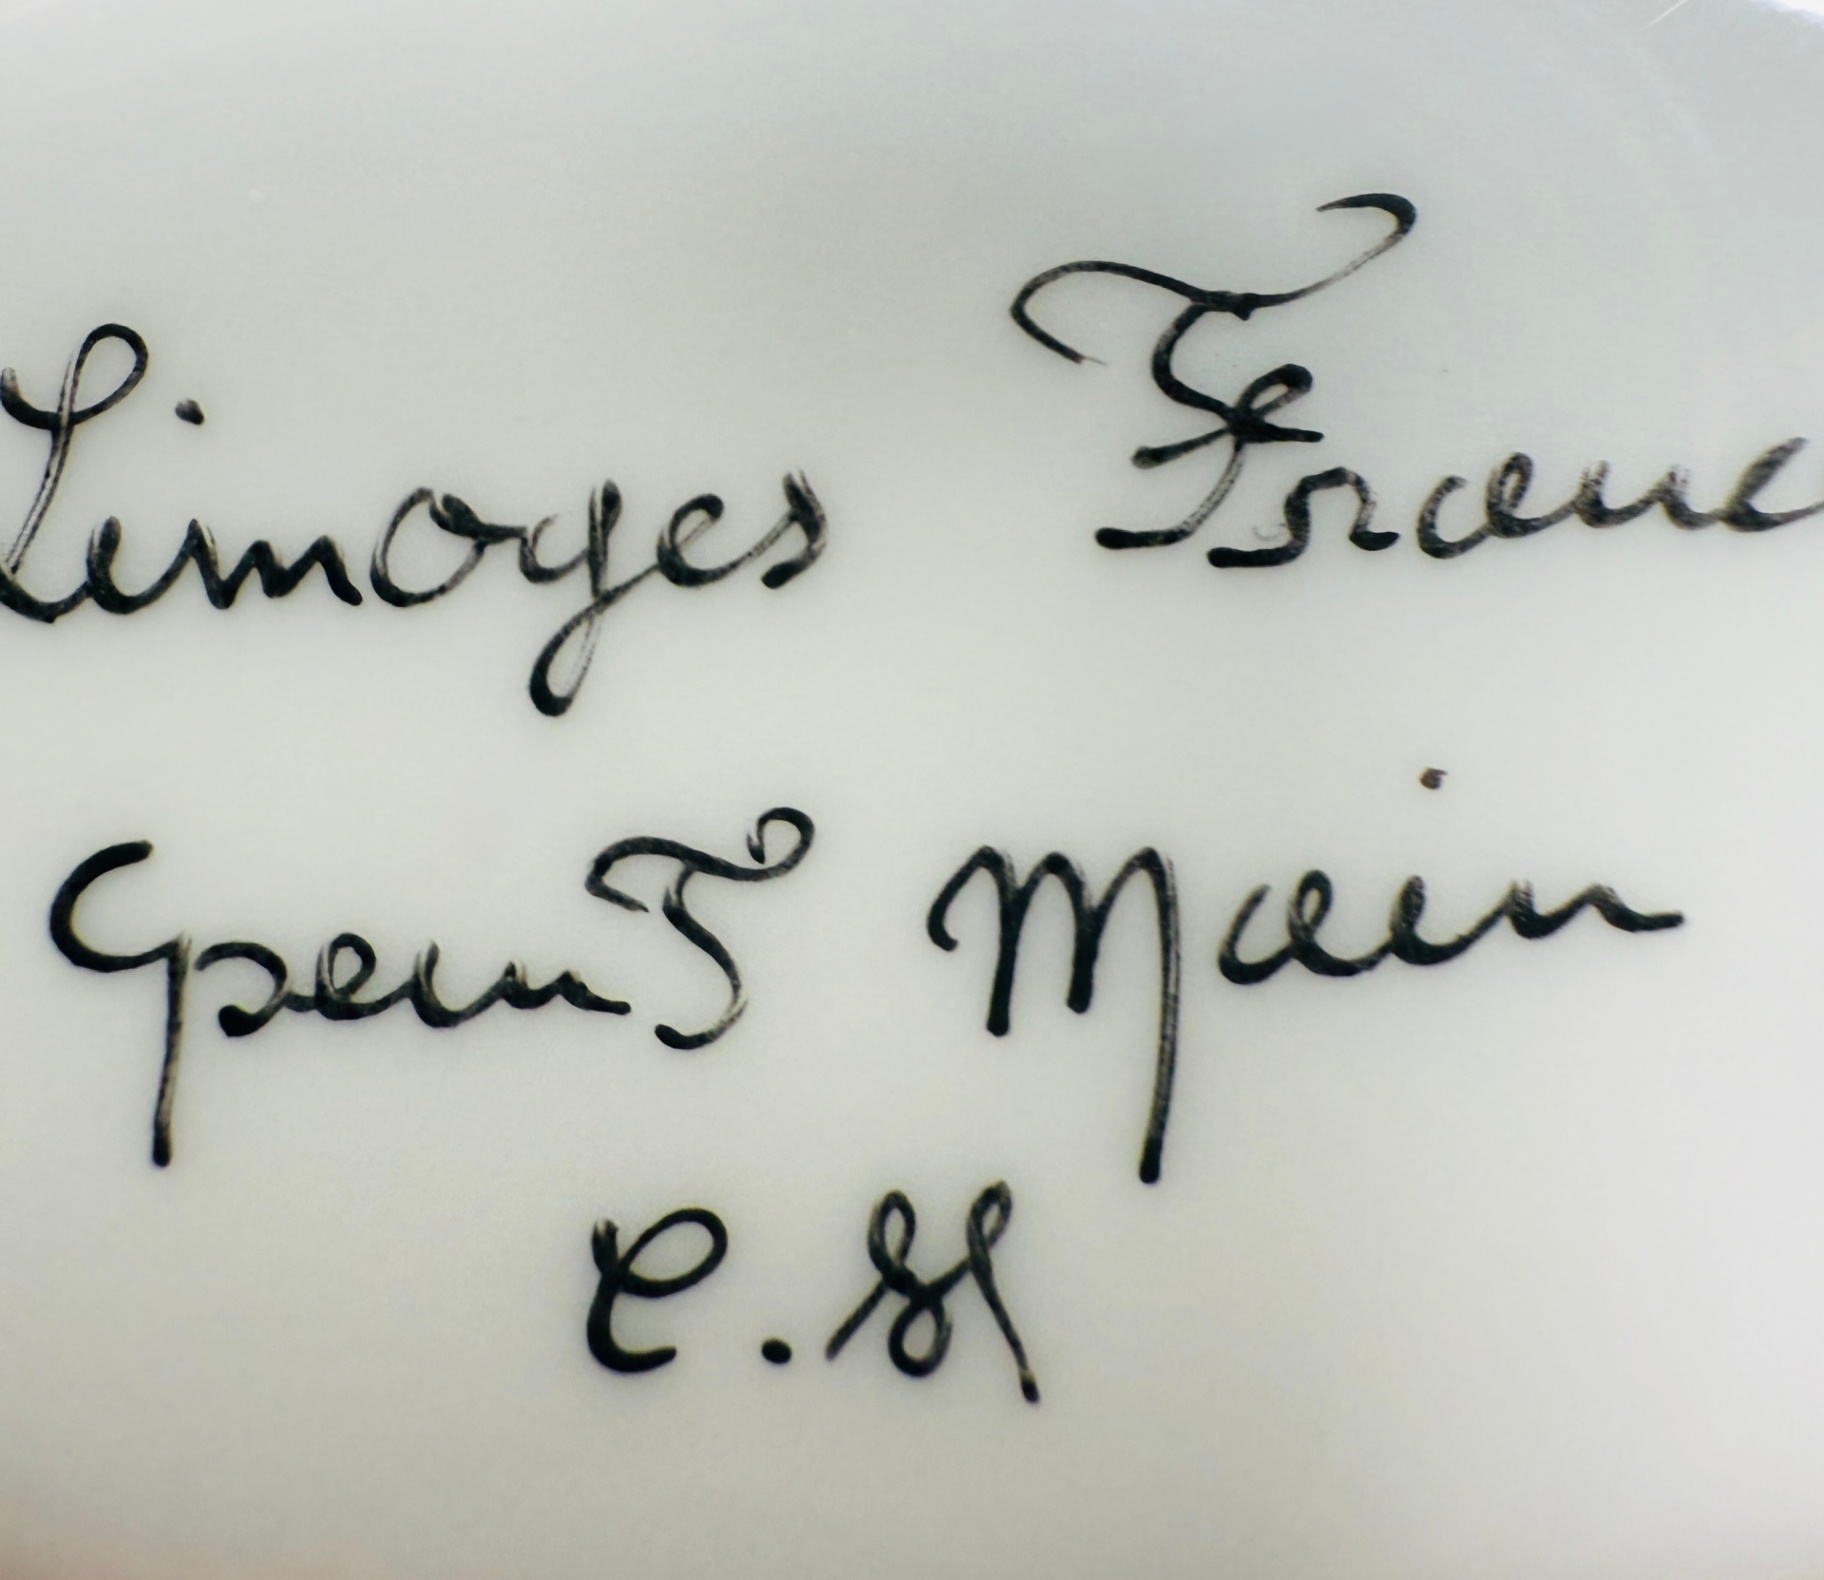 Limoges Franc
peint Main